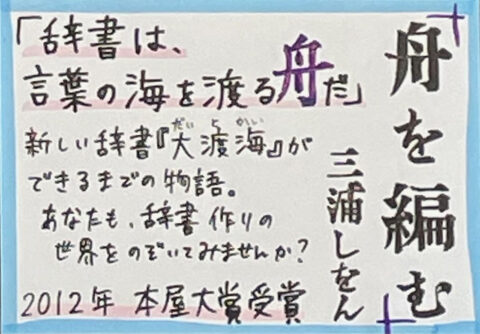 舟を編む
三浦しをん
「辞書は、
言葉の海を渡る舟だ」
新しい辞書『大渡海』が
だいとかい
できるまでの物語。
あなたも、辞書作りの
世界をのぞいてみませんか?
2012年 本屋大賞受賞